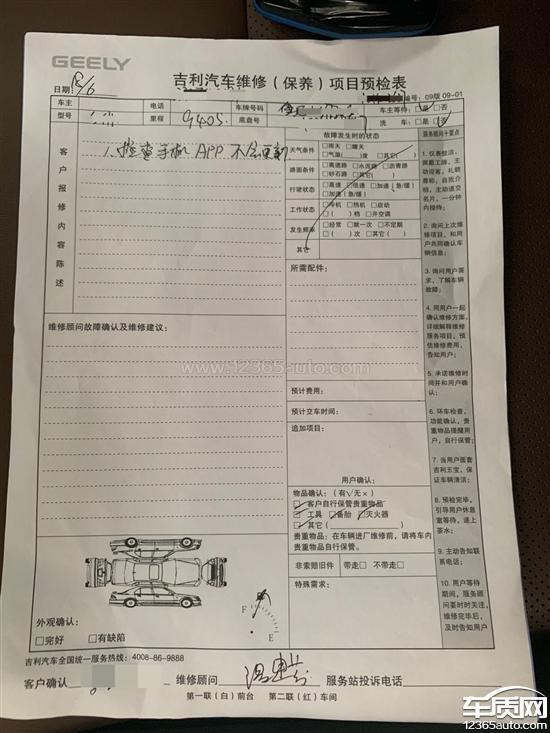 GEELY
吉利汽车维修（保养）项目预检表
日期: 18/6
编号: 09版 09-01
车主 电话 车牌号码 车主等待: □是 □否
型号 里程 9405. 底盘号 洗 车: □是 □否
客户报修内容陈述
1、检查手机 APP 不会更新
故障发生时的状态
天气条件 □雨天 □晴天
□气温( )度 □其它( )
路面条件 □高速路 □水泥路 □沥青路
□砂石路 □其它( )
行驶状态 □高速 □低速 □加速（急/缓）
□加速（急/缓）
工作状态 □冷机 □热机 □启动
□( )档 □开空调
发生频率 □经常 □就一次 □不定期
□( )次 □其它( )
其它
所需配件:
维修顾问故障确认及维修建议:
预计费用:
预计交车时间:
追加项目:
用户确认:
物品确认:（有√无×）
□客户自行保管贵重物品
□工具 □备胎 □灭火器
□其它( )
贵重物品: 在车辆进厂维修前，请将车内贵重物品自行保管。
非索赔旧件 带走□ 不带走□
特殊需求:
外观确认:
□完好 □有缺陷
F
E
服务顾问十要点
1. 仪表整洁，佩戴工牌，主动迎客，礼貌尊称，自我介绍，主动递交名片，一分钟内接待;
2. 询问上次维修项目，和用户共同确认车辆信息;
3. 询问用户需求，了解车辆故障;
4. 同用户一起确认维修方面，详细解释维修服务项目，预估维修费用，告知用户;
5. 承诺维修时间并和用户确认;
6. 环车检查，功能确认，贵重物品提醒用户，自行保管;
7. 当用户面套吉利五宝，保证车辆清洁;
8. 预检完毕，引导用户休息室等待，送上茶水;
9. 主动告知联系电话;
10. 用户等待期间，服务顾问要时时关注，维修完毕后，及时告知用户
吉利汽车全国统一服务热线: 4008-86-9888
客户确认 维修顾问 服务站投诉电话
第一联（白）前台 第二联（红）车间
www.12365auto.com
车质网
12365auto.com